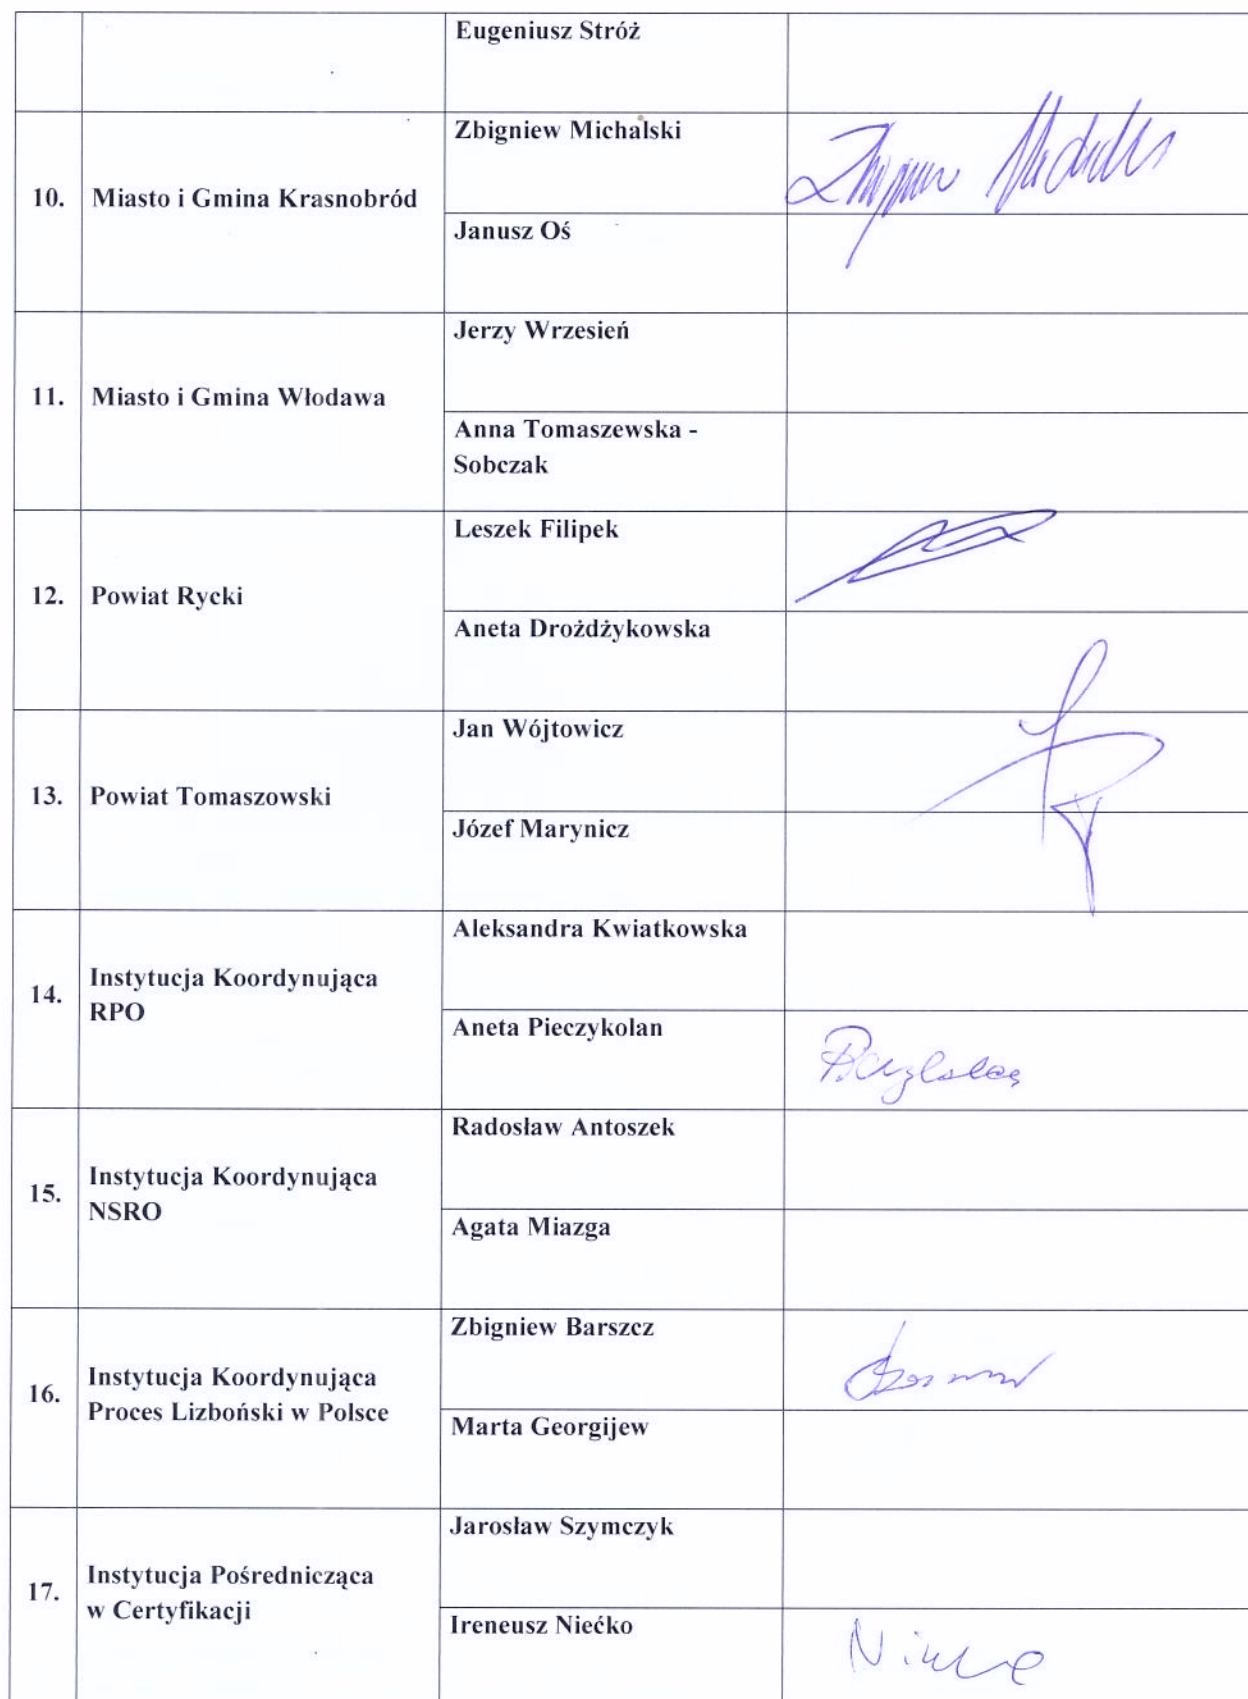 Eugeniusz Stróż
10.
Miasto i Gmina Krasnobród
Zbigniew Michalski
Janusz Oś
11.
Miasto i Gmina Włodawa
Jerzy Wrzesień
Anna Tomaszewska -
Sobczak
12.
Powiat Rycki
Leszek Filipek
Aneta Drożdżykowska
13.
Powiat Tomaszowski
Jan Wójtowicz
Józef Marynicz
14.
Instytucja Koordynująca
RPO
Aleksandra Kwiatkowska
Aneta Pieczykolan
15.
Instytucja Koordynująca
NSRO
Radosław Antoszek
Agata Miazga
16.
Instytucja Koordynująca
Proces Lizboński w Polsce
Zbigniew Barszcz
Marta Georgijew
17.
Instytucja Pośrednicząca
w Certyfikacji
Jarosław Szymczyk
Ireneusz Niećko